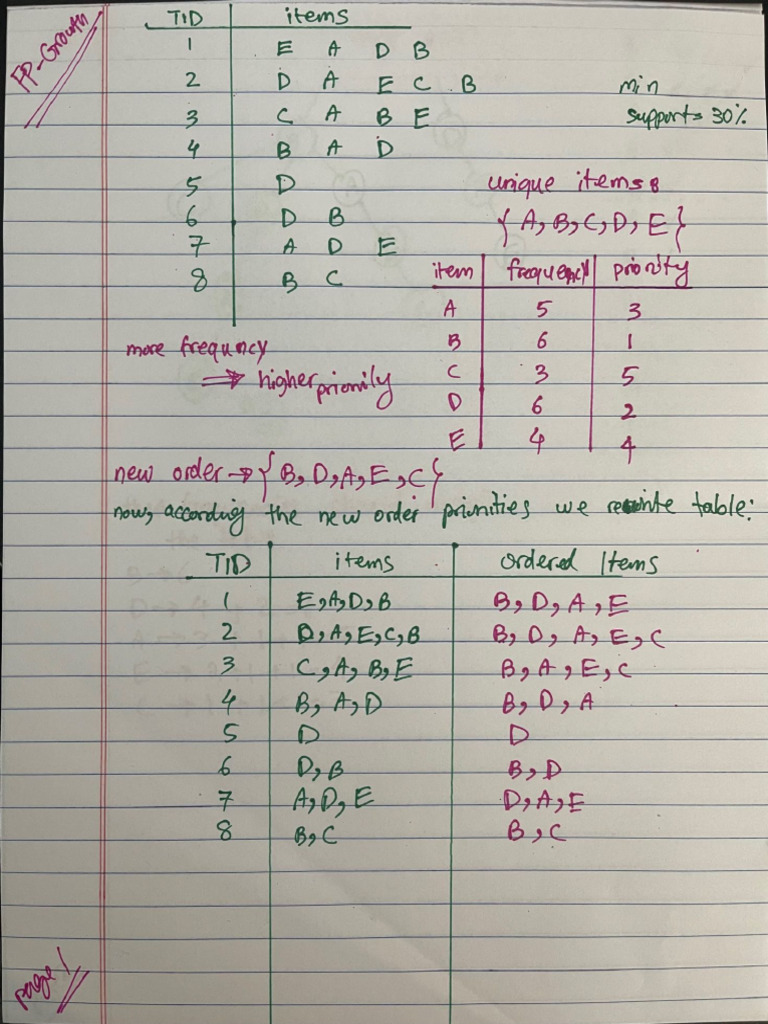 FP-Growth
TID items
1 E A D B
2 D A E C B
min
3 C A B E
support = 30%
4 B A D
5 D
unique items:
6 D B
{A, B, C, D, E}
7 A D E
8 B C
item frequency priority
A 5 3
B 6 1
C 3 5
D 6 2
E 4 4
more frequncy
⇒ higher priority
new order → {B, D, A, E, C}
now, according the new order priorities we rewrite table:
TID items ordered Items
1 E, A, D, B B, D, A, E
2 D, A, E, C, B B, D, A, E, C
3 C, A, B, E B, A, E, C
4 B, A, D B, D, A
5 D D
6 D, B B, D
7 A, D, E D, A, E
8 B, C B, C
page 1